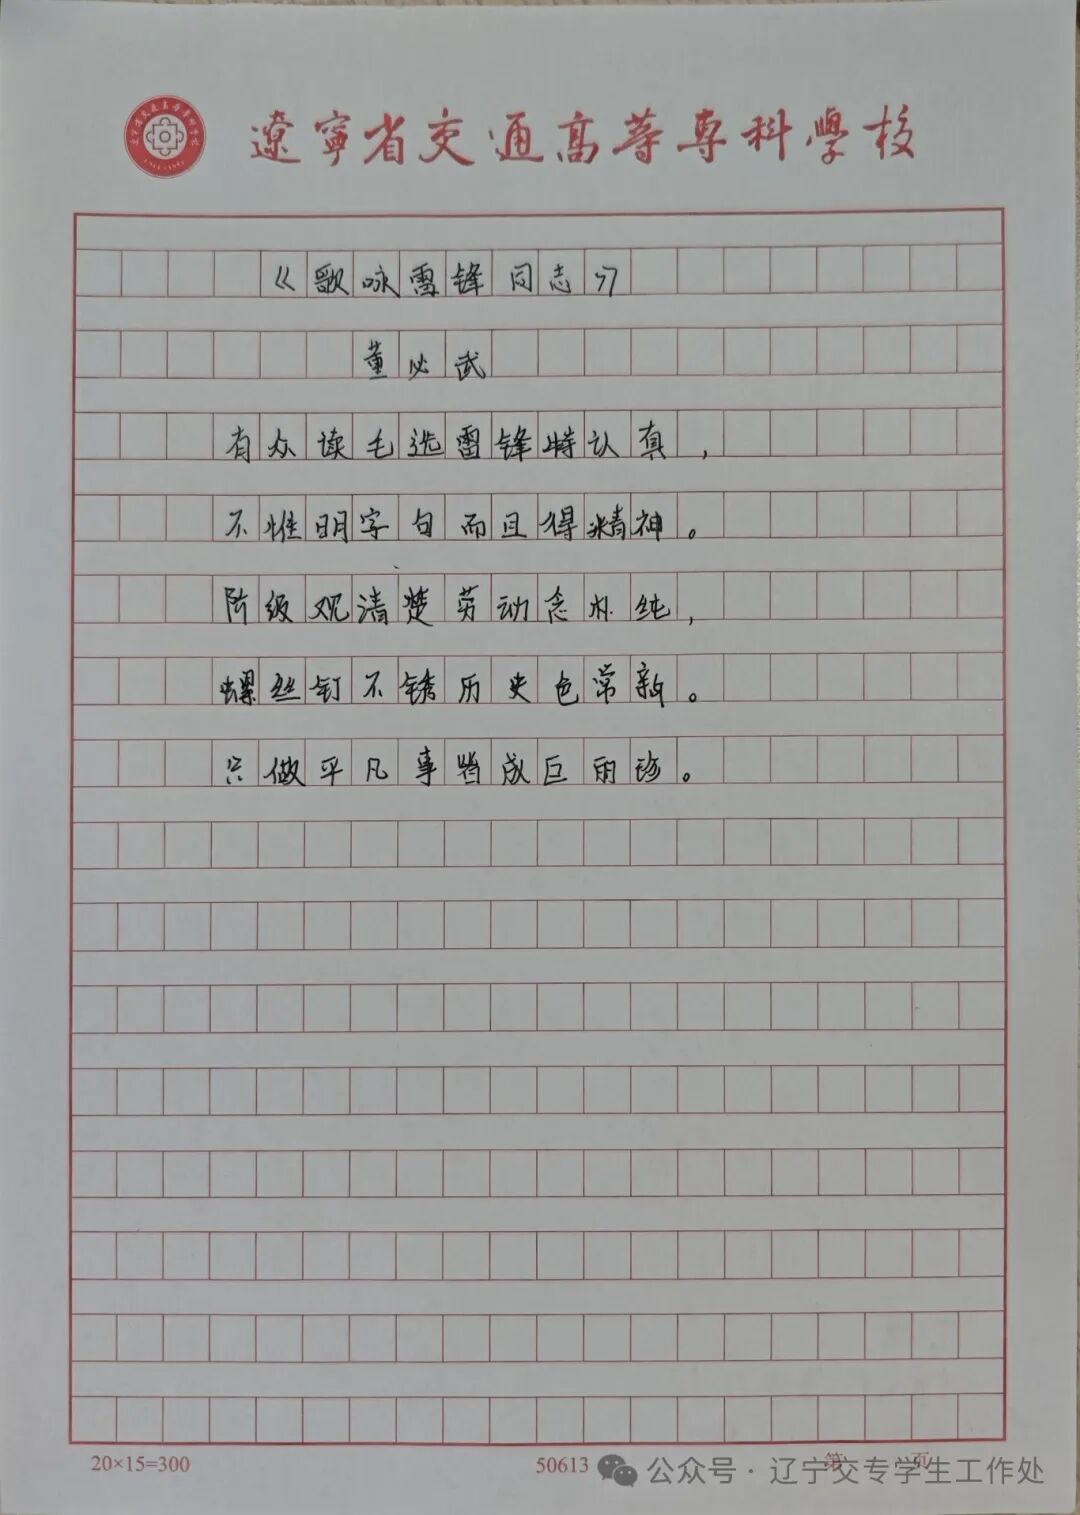 遼寧省交通高等專科學校
《歌咏雷锋同志》
董必武
有众读毛选雷锋特认真，
不惟明字句而且得精神。
阶级观清楚劳动念朴纯，
螺丝钉不锈历史色常新。
只做平凡事皆成巨丽珍。
20×15=300
50613
第 页
公众号·辽宁交专学生工作处